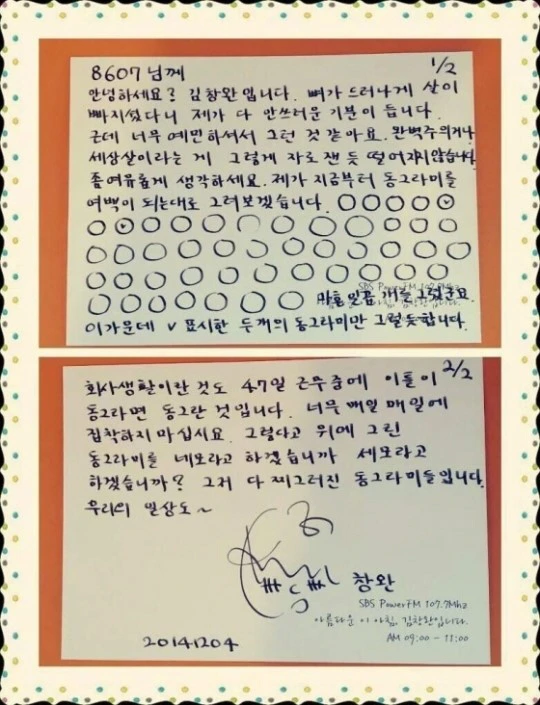 1/2
8607 님께
안녕하세요? 김창완 입니다. 뼈가 드러나게 살이
빠지셨다니 제가 다 안쓰러운 기분이 듭니다.
근데 너무 예민하셔서 그런 것 같아요. 완벽주의거나
세상살이라는 게 그렇게 자로 잰 듯 떨어지지 않습니다.
좀 여유롭게 생각하세요. 제가 지금부터 동그라미를
여백이 되는대로 그려보겠습니다.
마흔일곱 개를 그렸군요.
SBS PowerFM 107.7Mhz
이가운데 v 표시한 두개의 동그라미만 그럴듯합니다.
2/2
회사생활이란것도 47일 근무중에 이틀이
동그라면 동그란 것입니다. 너무 매일매일에
집착하지 마십시요. 그렇다고 위에 그린
동그라미를 네모라고 하겠습니까 세모라고
하겠습니까? 그저 다 찌그러진 동그라미들입니다.
우리의 일상도~
창완
SBS PowerFM 107.7Mhz
아름다운 이 아침, 김창완입니다.
AM 09:00 - 11:00
20141204